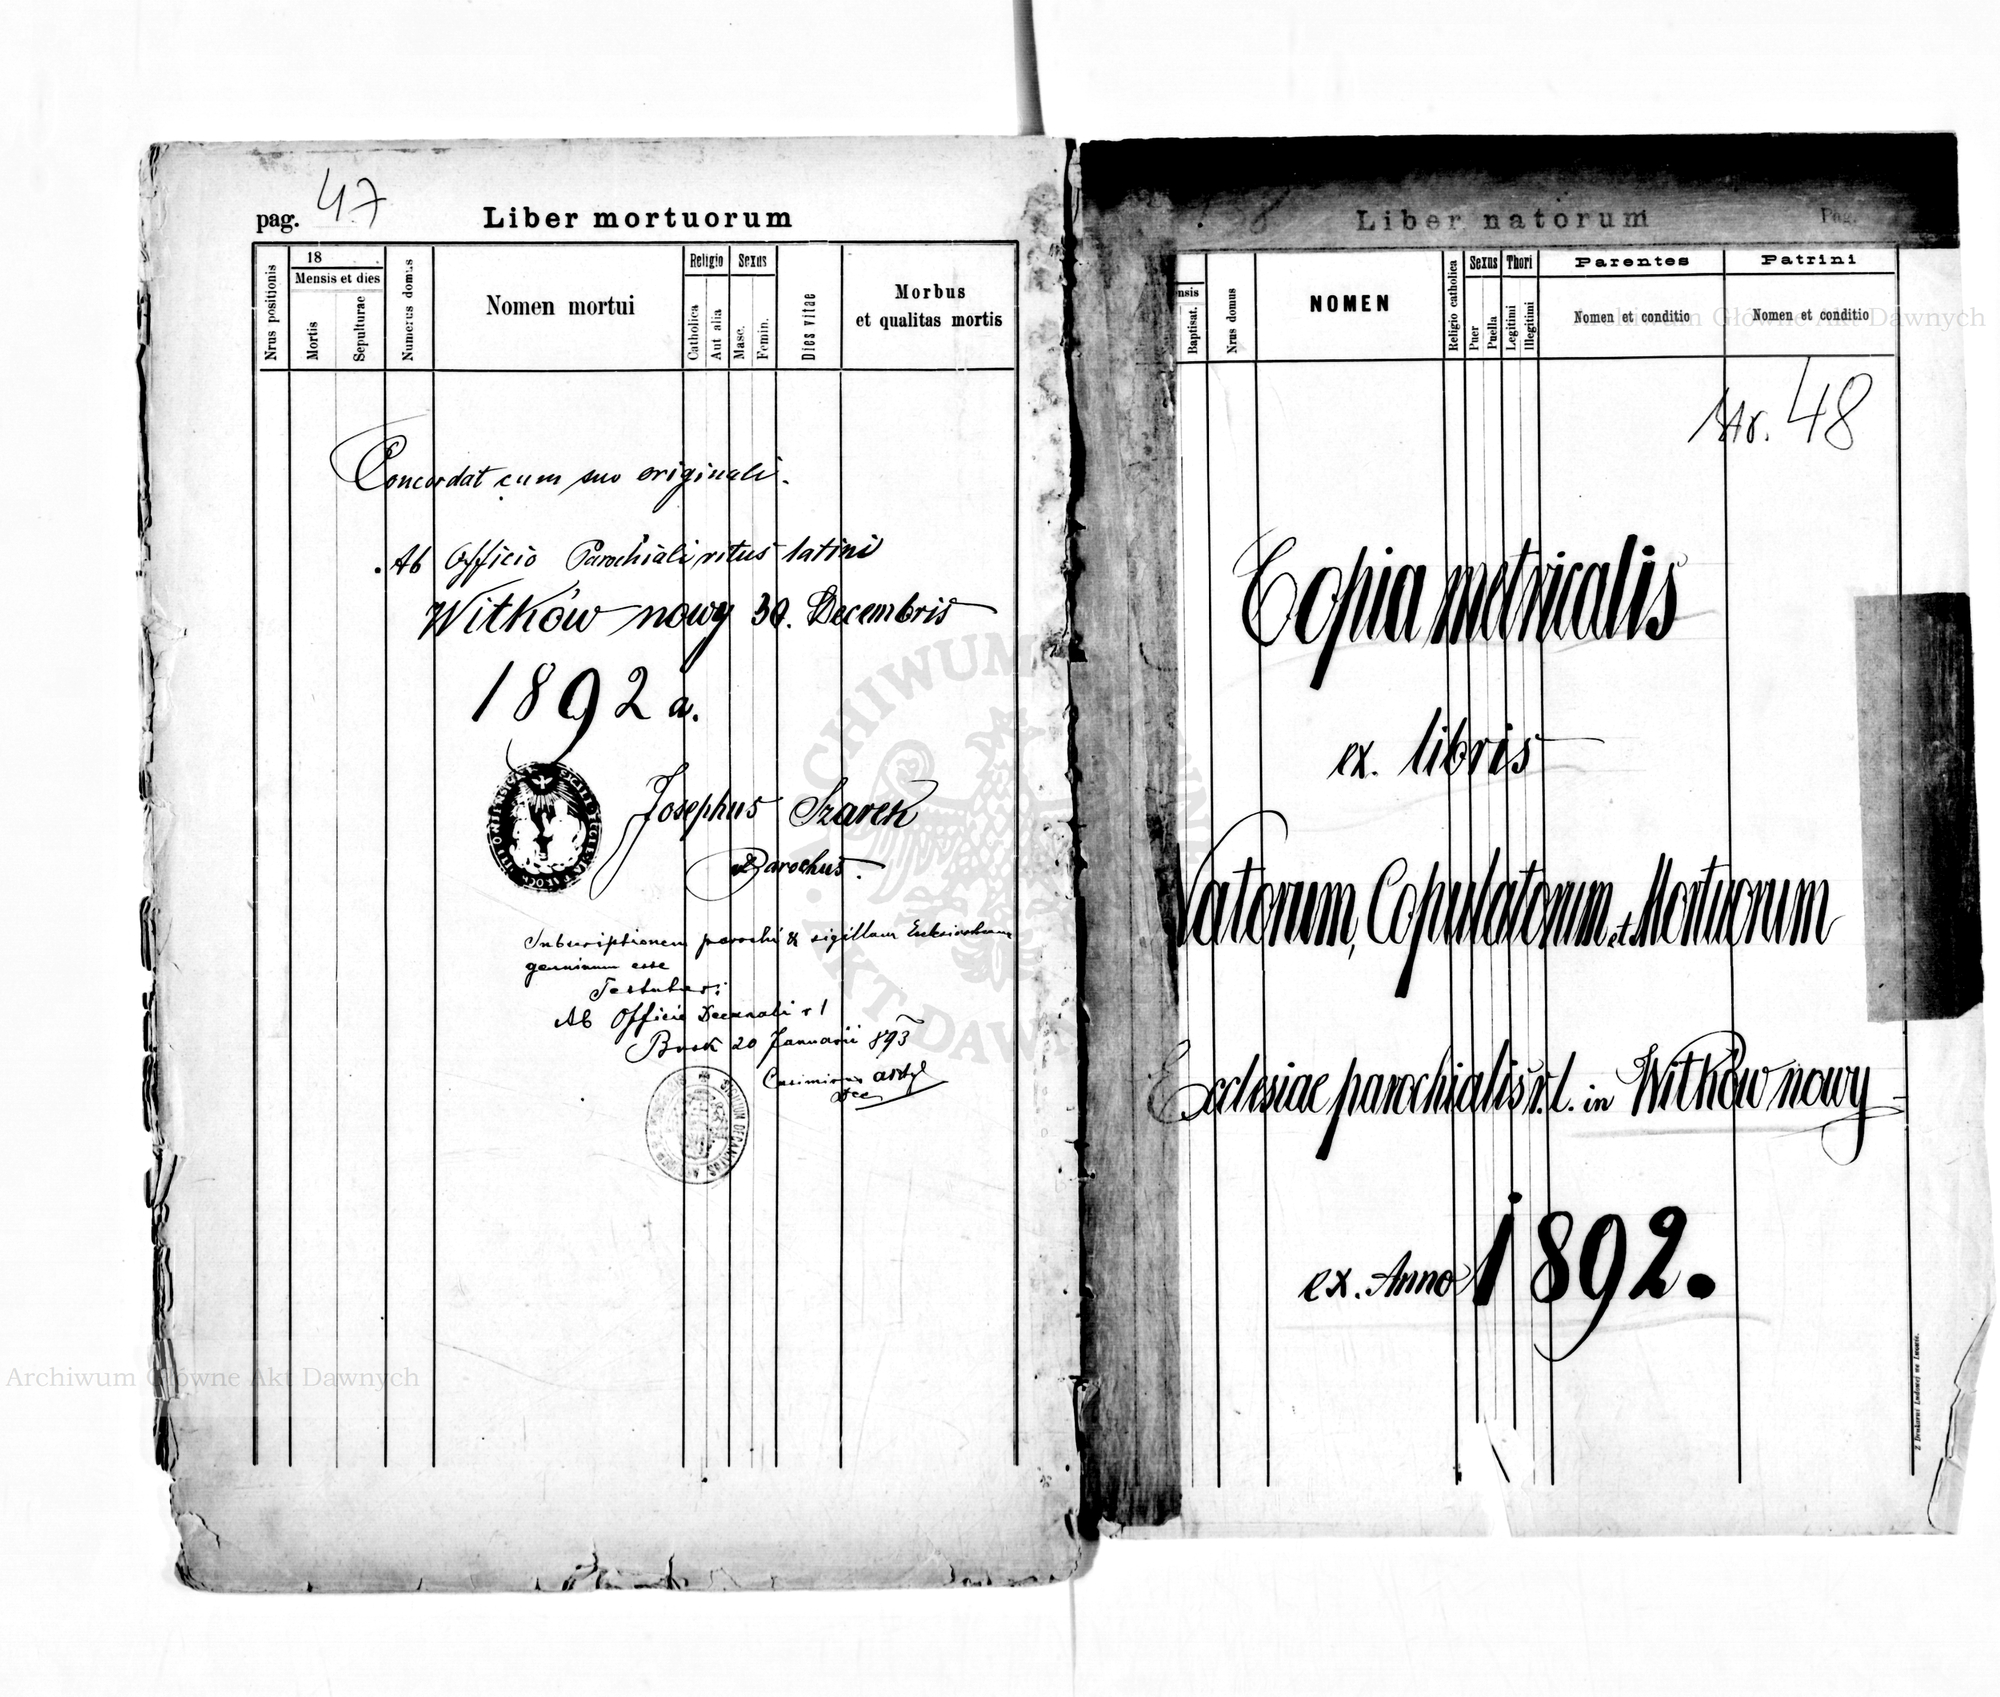 pag. 47
Liber mortuorum
Nrus positionis
18
Mensis et dies
Mortis
Sepulturae
Numerus domus
Nomen mortui
Religio
Catholica
Aut alia
Sexus
Masc.
Femin.
Dies vitae
Morbus
et qualitas mortis
Concordat cum suo originali.
Ab Officio Parochiali ritus latini
Witków nowy 30. Decembris
1892 a.
Josephus Szarek
Parochus.
parochi & sigillum
genuinum esse
Testatur:
Ab Officio Decanali r l
Busk 20 Januarii 893
Casimirus
Dec
SIGILLUM DECANATUS
Liber natorum
Pag.
Baptisat.
Nrus domus
NOMEN
Religio catholica
Sexus
Puer
Puella
Thori
Legitimi
Illegitimi
Parentes
Nomen et conditio
Patrini
Nomen et conditio
Nr. 48
Copia metricalis
ex. libris
Natorum, Copulatorum et Mortuorum
Ecclesiae parochialis r. l. in Witków nowy
ex. Anno 1892.
Z Drukarni Ludowej we Lwowie.
ARCHIWUM GŁÓWNE AKT DAWNYCH
Archiwum Główne Akt Dawnych
Archiwum Główne Akt Dawnych